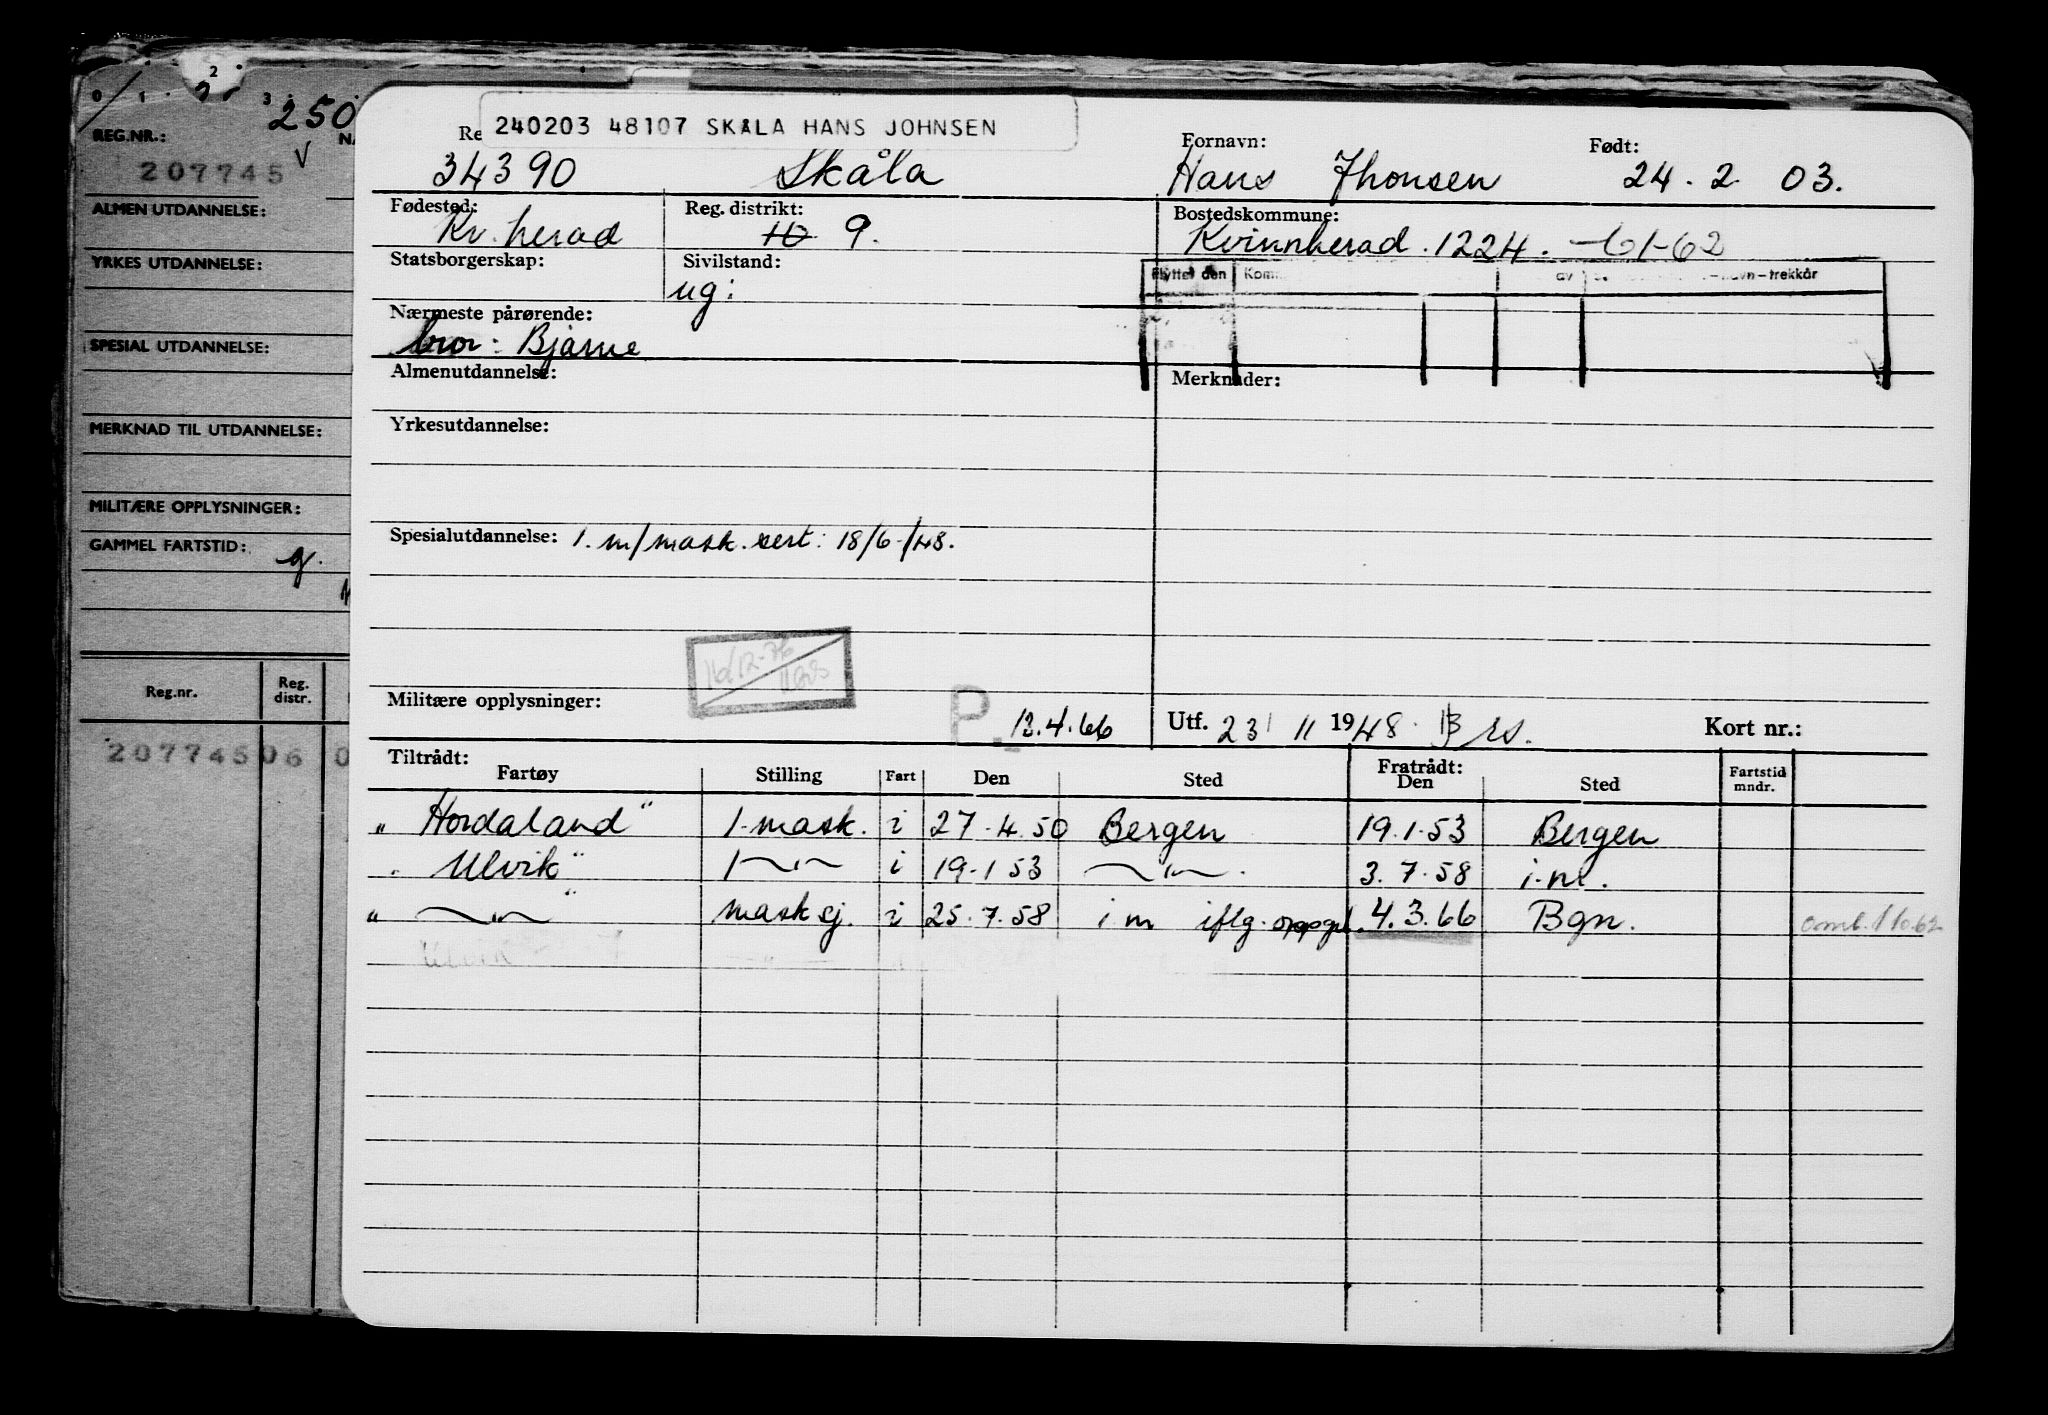 2
0 1 2 3
250
REG.NR.:
207745
V
ALMEN UTDANNELSE:
YRKES UTDANNELSE:
SPESIAL UTDANNELSE:
MERKNAD TIL UTDANNELSE:
MILITÆRE OPPLYSNINGER:
GAMMEL FARTSTID: g.
Reg.nr. Reg. distr.
20774506 0
240203 48107 SKALA HANS JOHNSEN
Re Fornavn: Født:
34390 Skåla Hans Jhonsen 24.2 03.
Fødested: Reg. distrikt: Bostedskommune:
Kv. herad 10 9. Kvinnherad. 1224. 61-62
Statsborgerskap: Sivilstand:
ug:
Flyttet den Kom av navn-trekkår
Nærmeste pårørende:
bror: Bjarne
Almenutdannelse: Merknader:
Yrkesutdannelse:
Spesialutdannelse: 1. m/mask. sert: 18/6-/48.
Militære opplysninger: P. 12.4.66 Utf. 23/ 11 1948. Kort nr.:
Tiltrådt: Fratrådt:
Fartøy Stilling Fart Den Sted Den Sted Fartstid mndr.
"Hordaland" 1.mask. i 27.4.50 Bergen 19.1.53 Bergen
"Ulvik" 1 —"— i 19.1 53 —"—. 3.7.58 i.m.
" —"— " mask sj. i 25.7.58 i m iflg. oppgil. 4.3.66 Bgn. omb. 1 10.62
Ulvik —"—